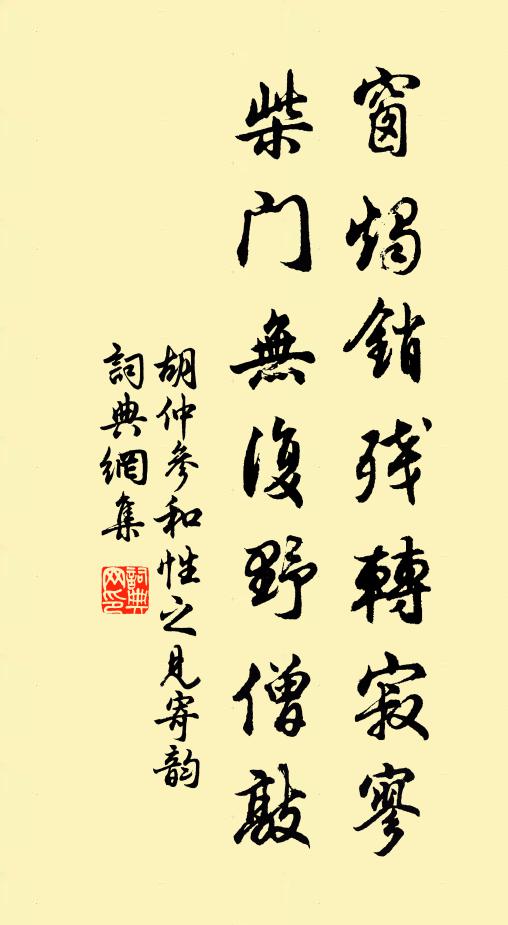 窗燭銷残轉寂寥
柴门無復野僧敲
胡仲參和性之見寄韵
詞典網集
詞典网印